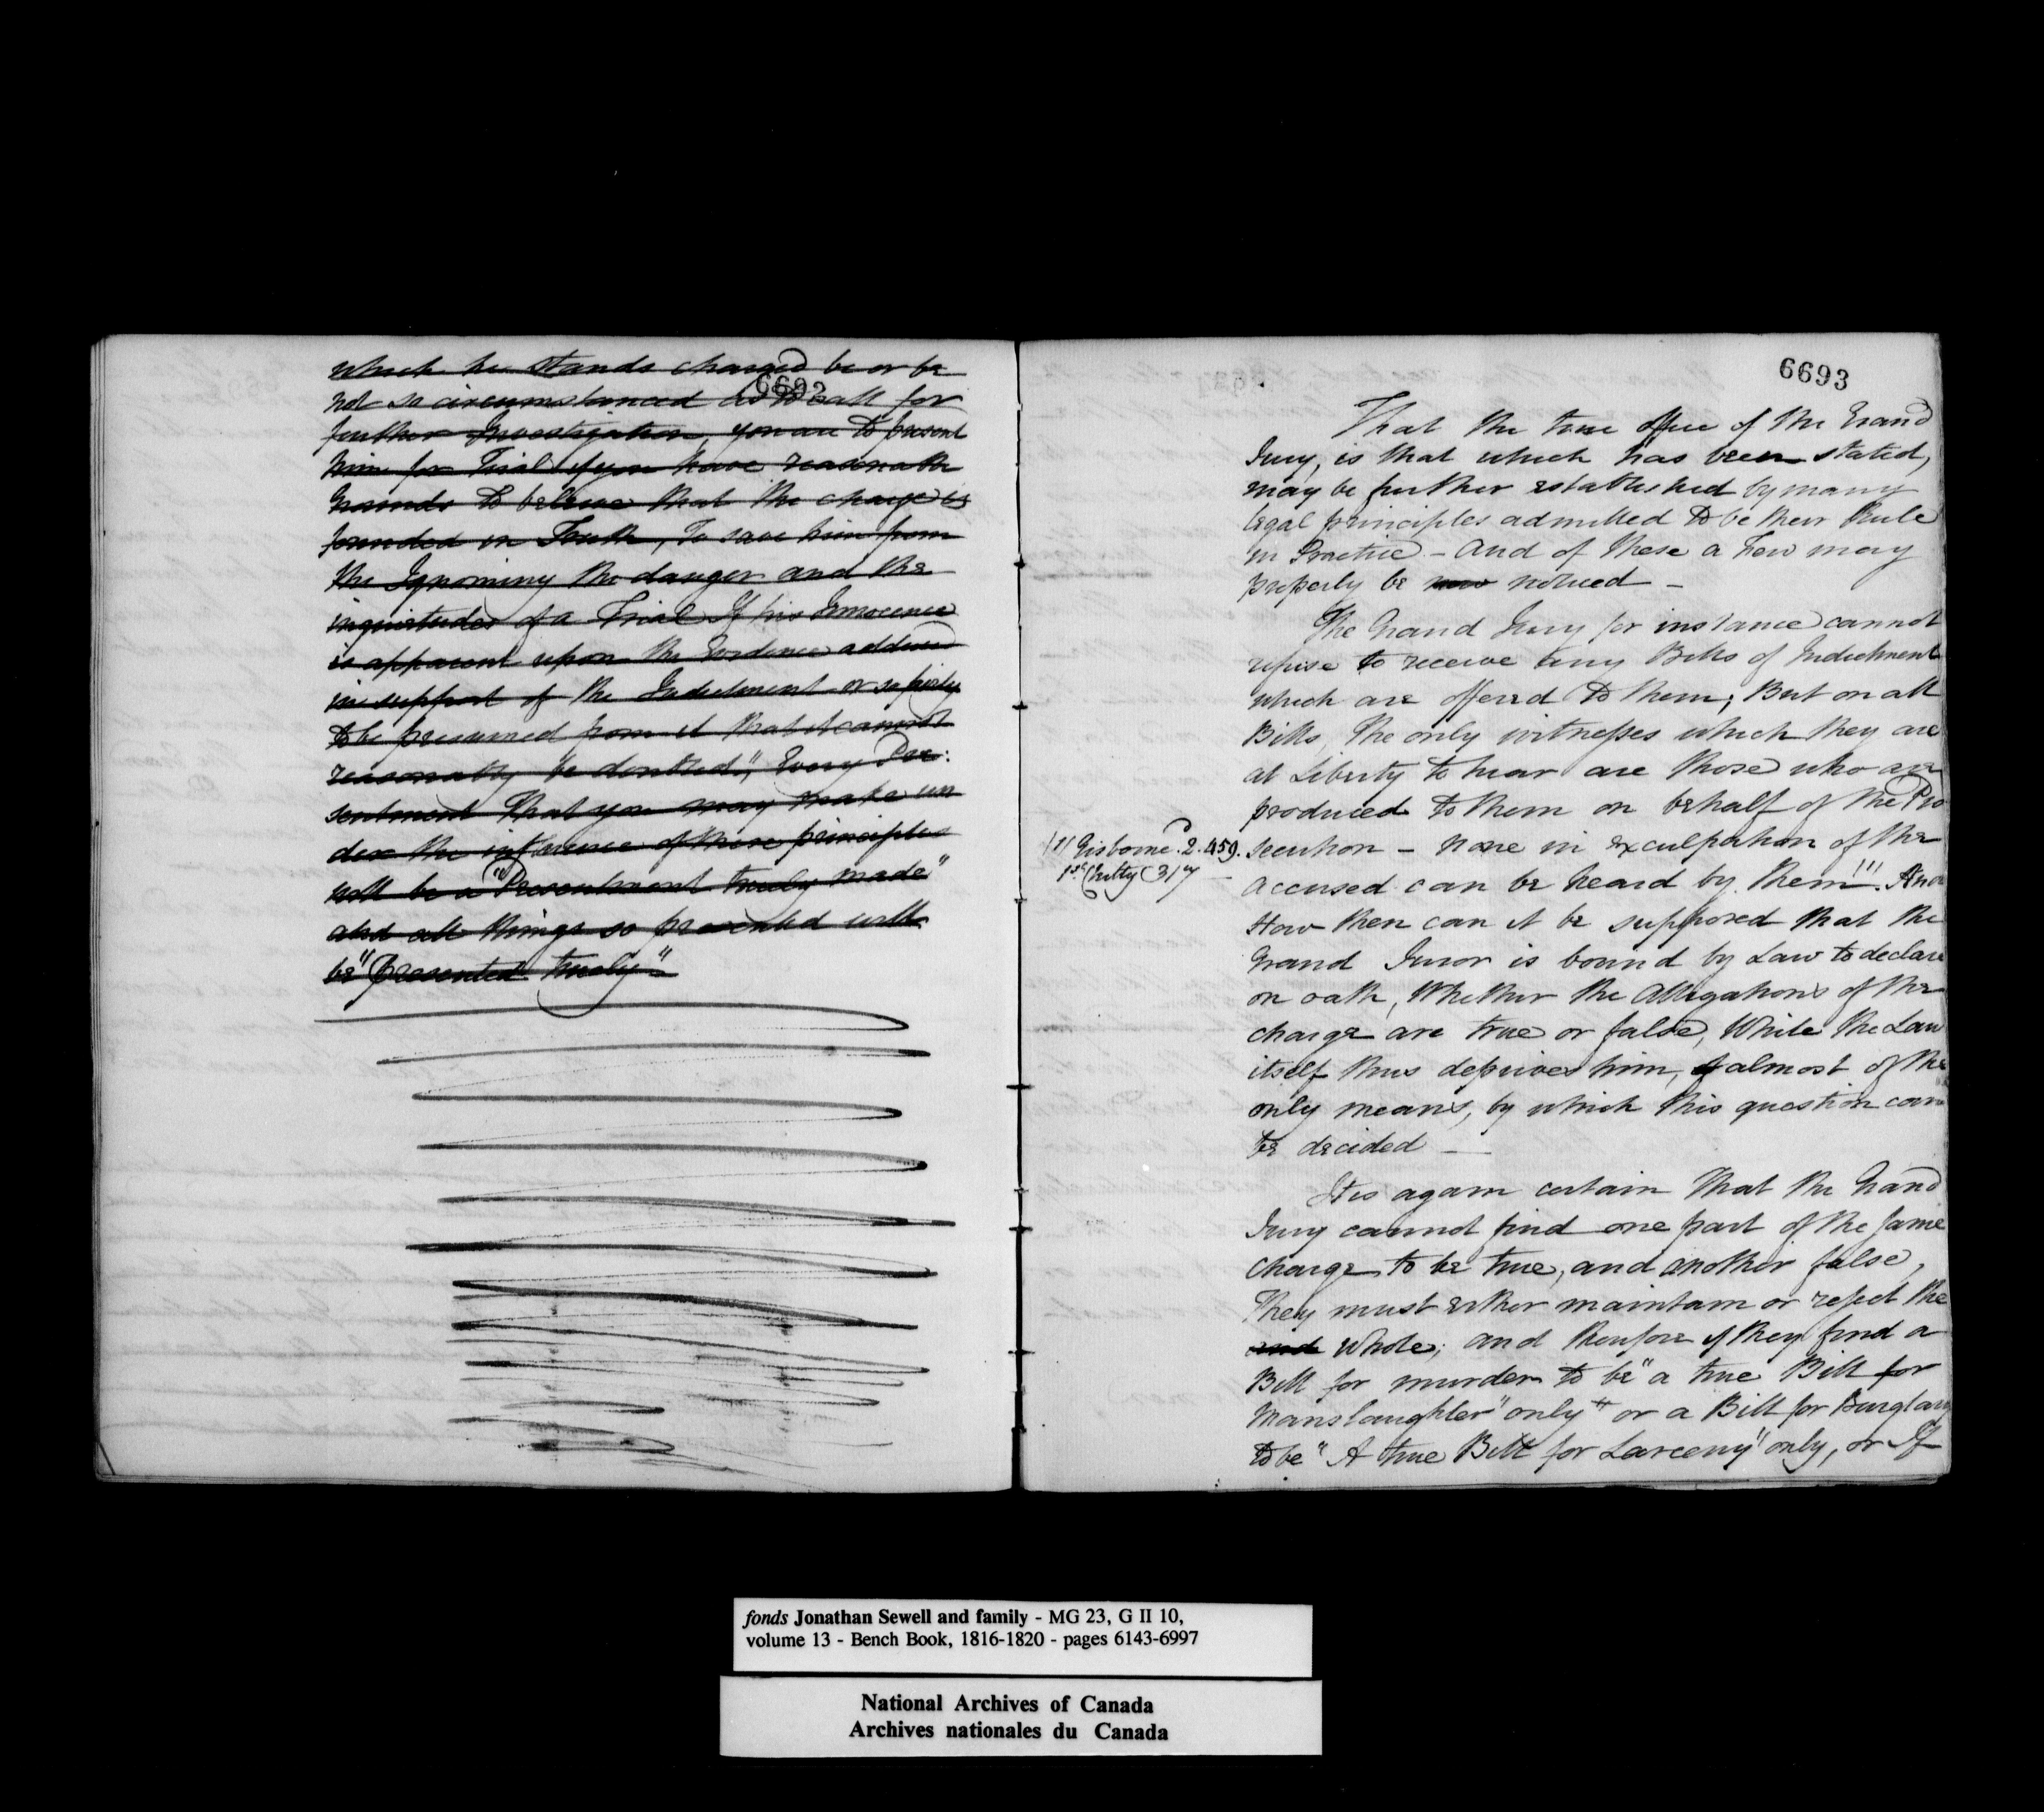 which he stands charged be or be
6693
not so circumstanced as to call for
further Investigation, you are to present
him for Trial if you have reasonable
Grounds to believe that the charge is
founded in Truth, To save him from
the Ignominy the danger and the
inquietudes of a Trial If his Innocence
is apparent upon the Evidence adduced
in support of the Indictment or so fairly
to be presumed from it that it cannot
reasonably be doubted", Every Pre:
sentment That you may make un
der the influence of these principles
will be a "Presentment truly made"
and all things so presented will
be "Presented truely"
6693
That the true office of the Grand
Jury, is that which has been stated,
may be further established by many
legal principles admitted to be their Rule
in Practice - And of these a Few may
properly be now noticed -
The Grand Jury for instance cannot
refuse to receive any Bills of Indictment
which are offered to them; But on all
Bills, The only witnesses which they are
at Liberty to hear are those who are
produced to them on behalf of the Pro
(1) Gisborne. 2. 459.
1st Chitty 317
secution - none in exculpation of the
accused can be heard by them (1). And
How then can it be supposed that the
Grand Juror is bound by Law to declare
on oath, Whether the Allegations of the
charge are true or false, While the Law
itself thus deprives him, of almost of the
only means, by which this question can
be decided —
It is again certain That the Grand
Jury cannot find one part of the same
charge to be true, and another false,
They must either maintain or reject the
and Whole; and therefore if they find a
Bill for murder to be "a true Bill for
Manslaughter" only or a Bill for Burglary
to be "A true Bill for Larceny" only, or If
fonds Jonathan Sewell and family - MG 23, G II 10,
volume 13 - Bench Book, 1816-1820 - pages 6143-6997
National Archives of Canada
Archives nationales du Canada